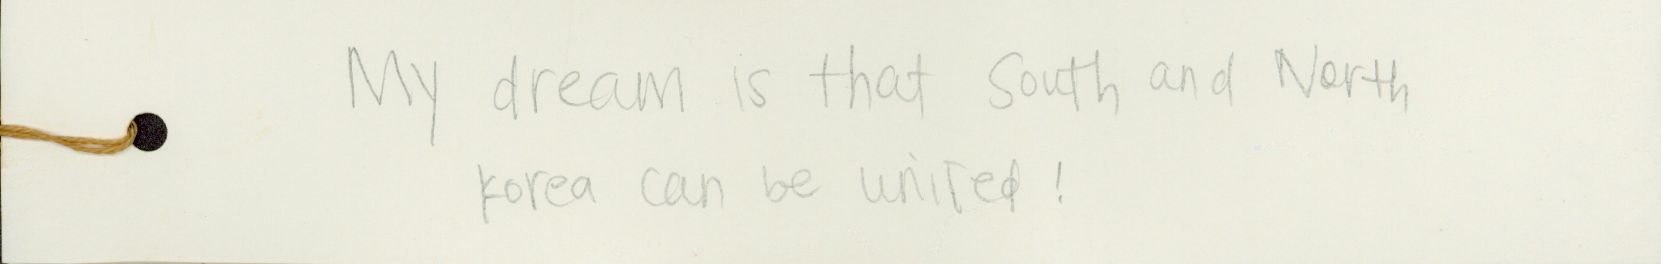 My dream is that South and North
Korea can be united!